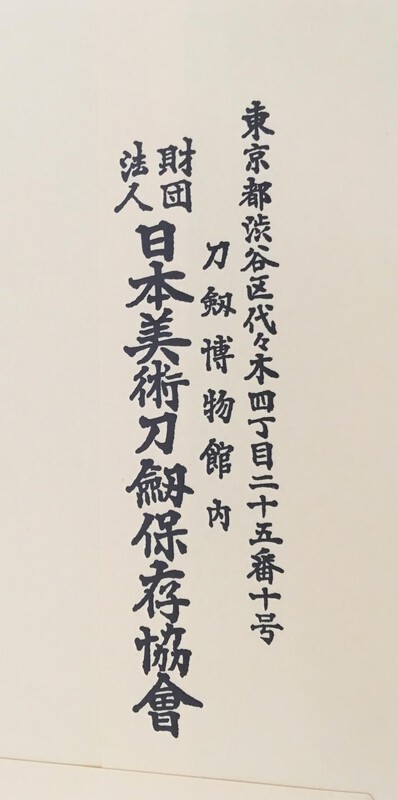 東京都渋谷区代々木四丁目二十五番十号
刀劔博物館内
財団
法人
日本美術刀劔保存協會